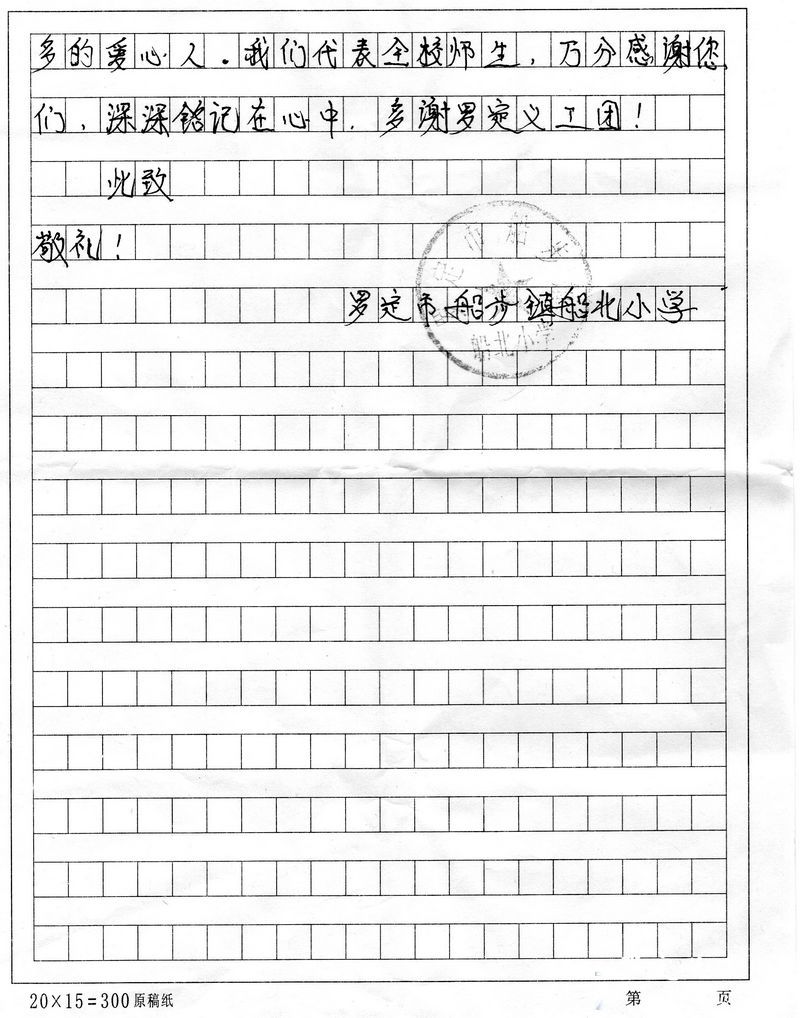 多的爱心人。我们代表全校师生，万分感谢您
们，深深铭记在心中，多谢罗定义工团！
此致
敬礼！
罗定市船步镇船北小学
定市船步
船北小学
20×15=300原稿纸
第 页